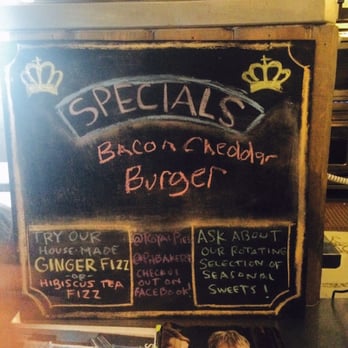 SPECIALS
Bacon Cheddar
Burger
TRY OUR
HOUSE-MADE
GINGER FIZZ
-OR-
HIBISCUS TEA
FIZZ
CHECK US
OUT ON
FACEBOOK!
ASK ABOUT
OUR ROTATING
SELECTION OF
SEASONAL
SWEETS!